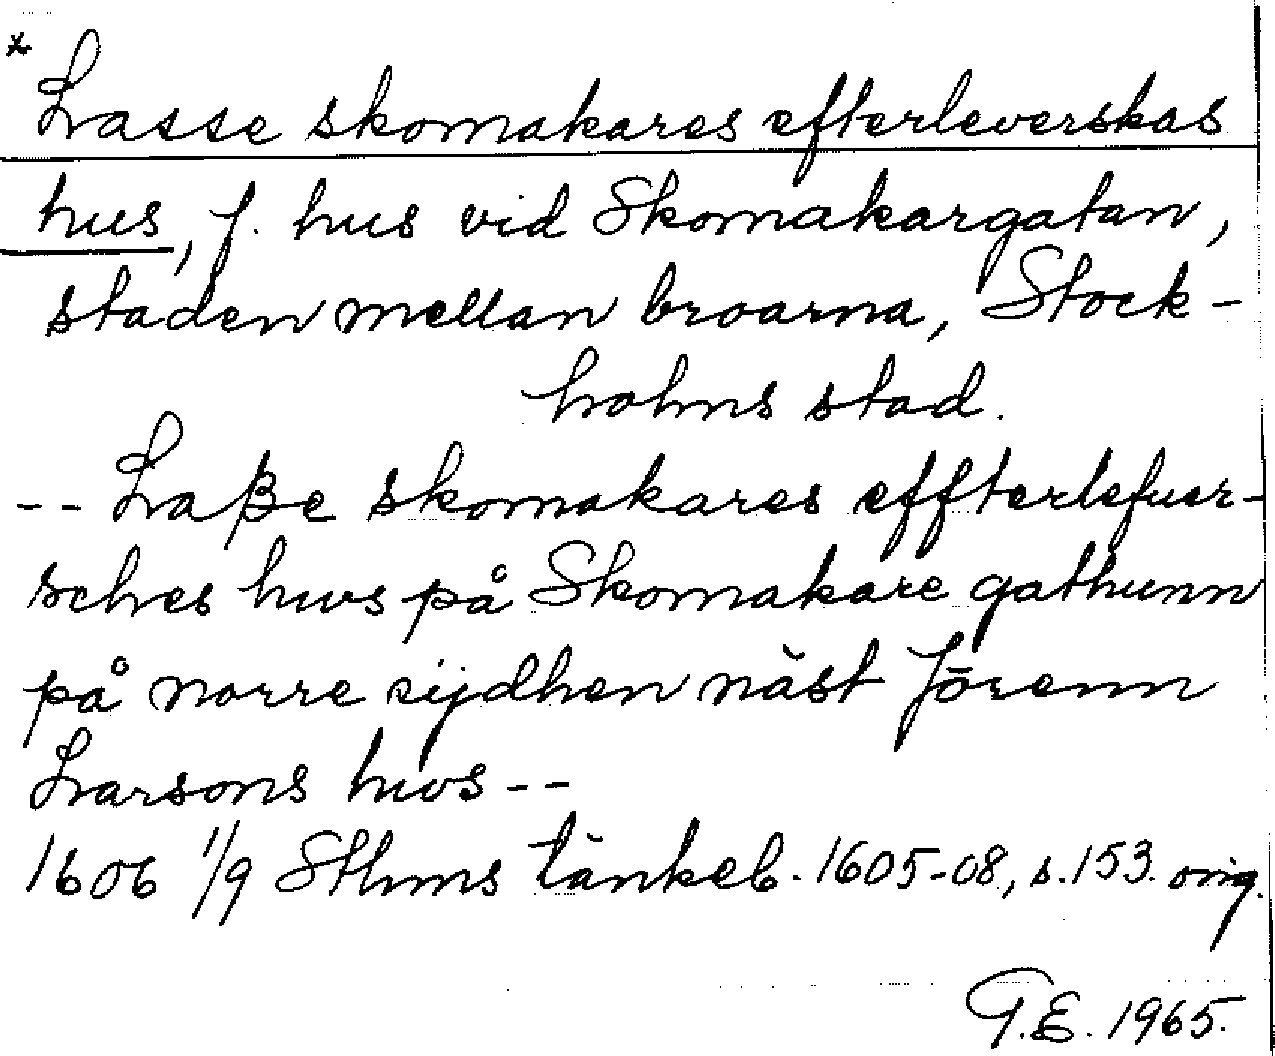 * Lasse skomakares efterleverskas
hus, f. hus vid Skomakargatan,
staden mellan broarna, Stock-
holms stad.
-- Laße skomakares effterlefuer-
sches hws på Skomakare gathunn
på norre sijdhen näst Jörenn
Larsons hws--
1606 1/9 Sthms tänkeb. 1605-08, s.153. orig.
G.E. 1965.